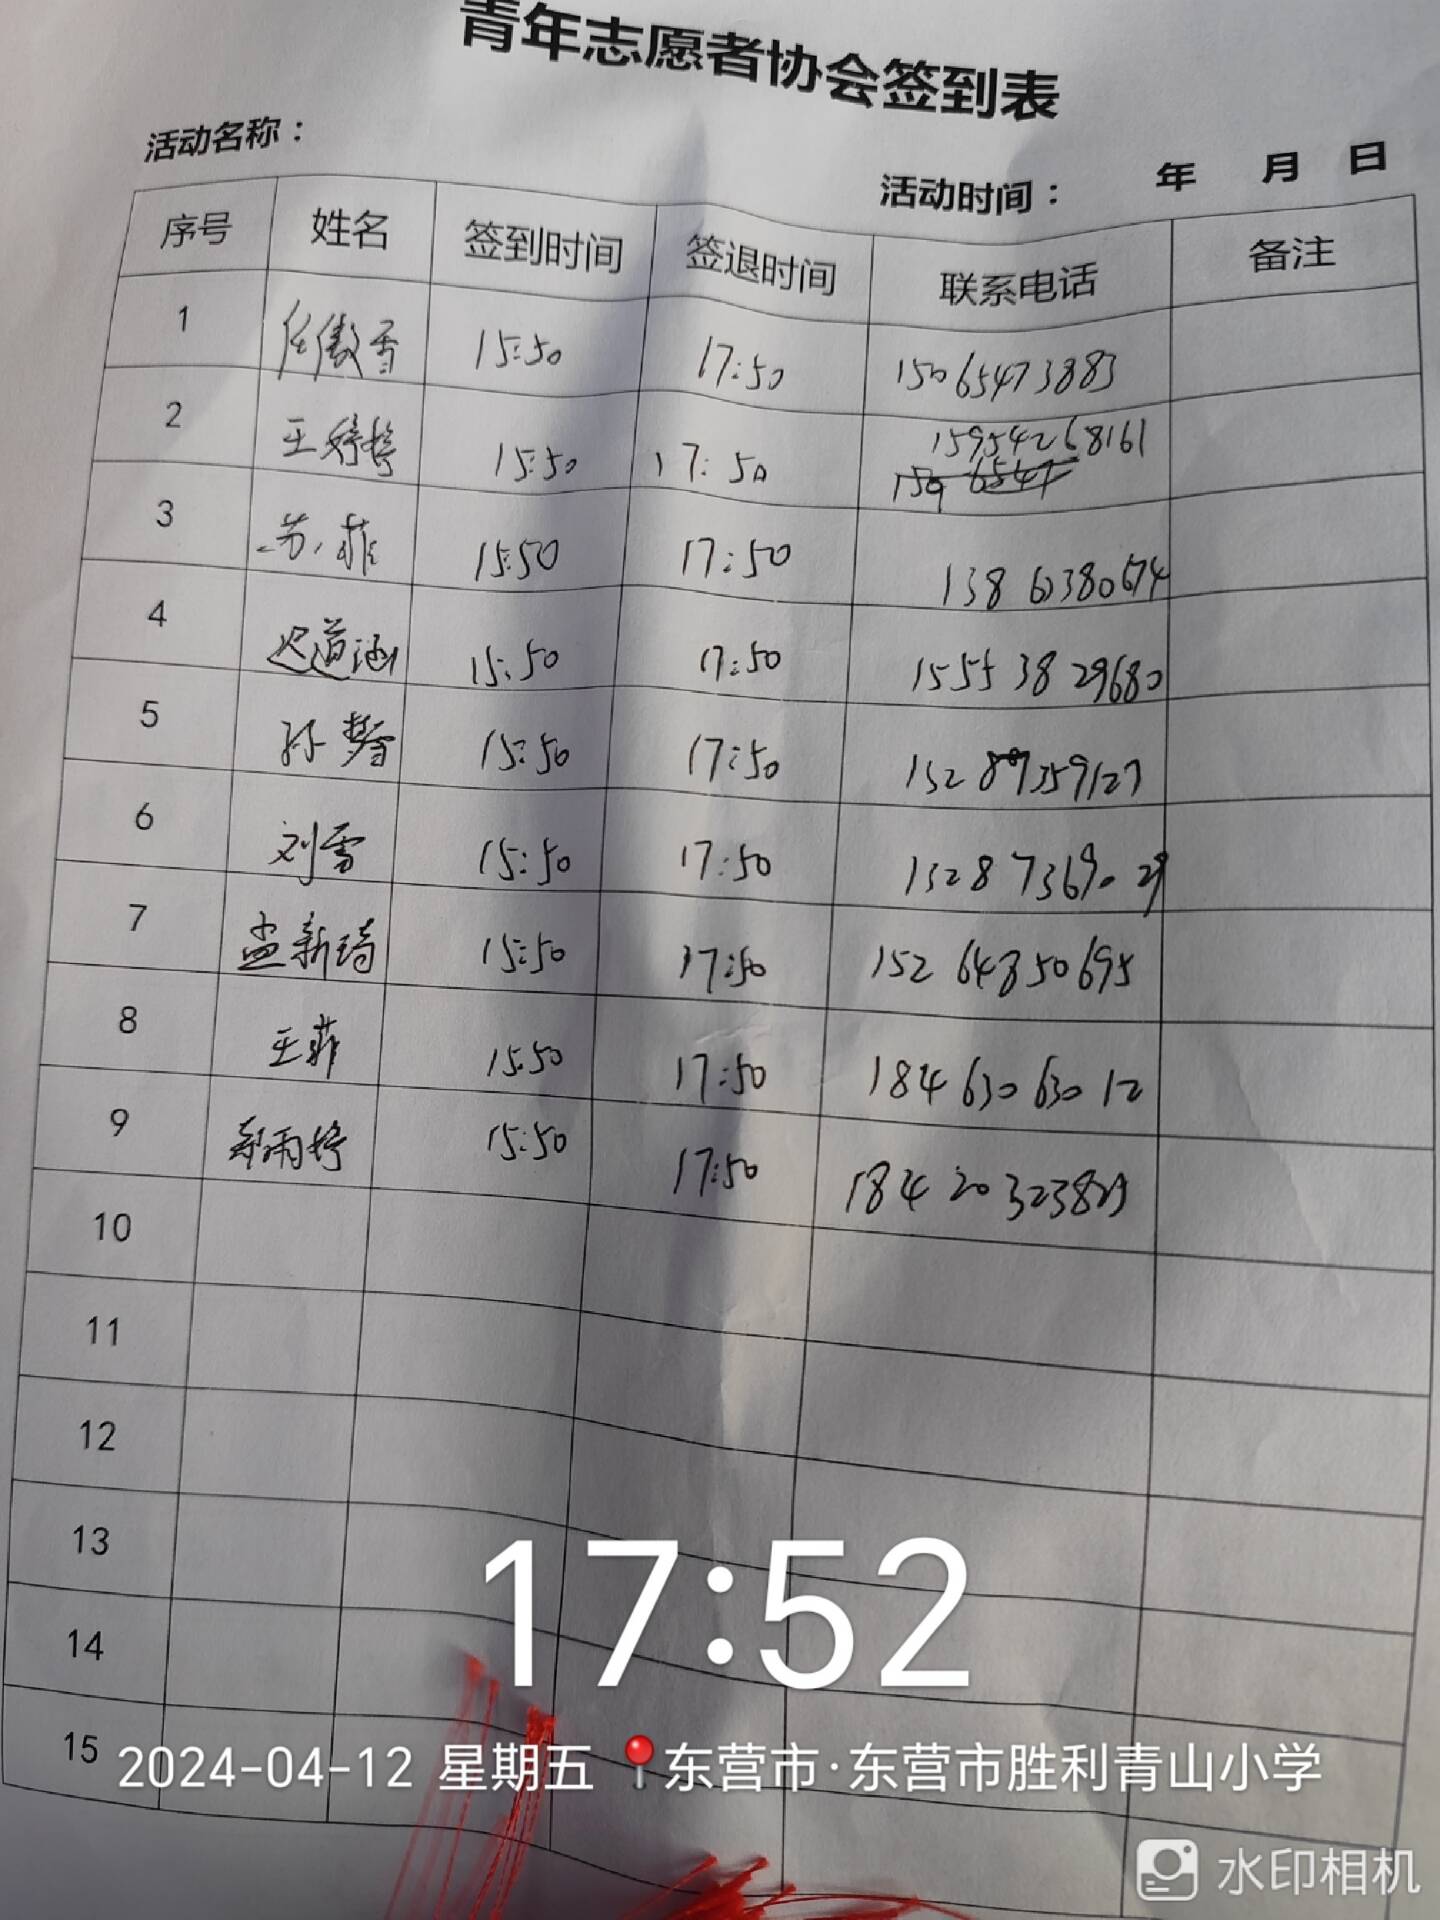 青年志愿者协会签到表
活动名称：
活动时间： 年 月 日
序号 姓名 签到时间 签退时间 联系电话 备注
1 任傲雪 15:50 17:50 15065473883
2 王婷婷 15:50 17:50 15954268161
3 苏菲 15:50 17:50 13860380674
4 迟道涵 15:50 17:50 15553829680
5 孙梦 15:50 17:50
6 刘雪 15:50 17:50 13287369029
7 孟新琦 15:50 17:50 15264850695
8 王菲 15:50 17:50 18463063012
9 郭雨婷 15:50 17:50 18420323829
10
11
12
13
14
15
17:52
2024-04-12 星期五 东营市·东营市胜利青山小学
水印相机